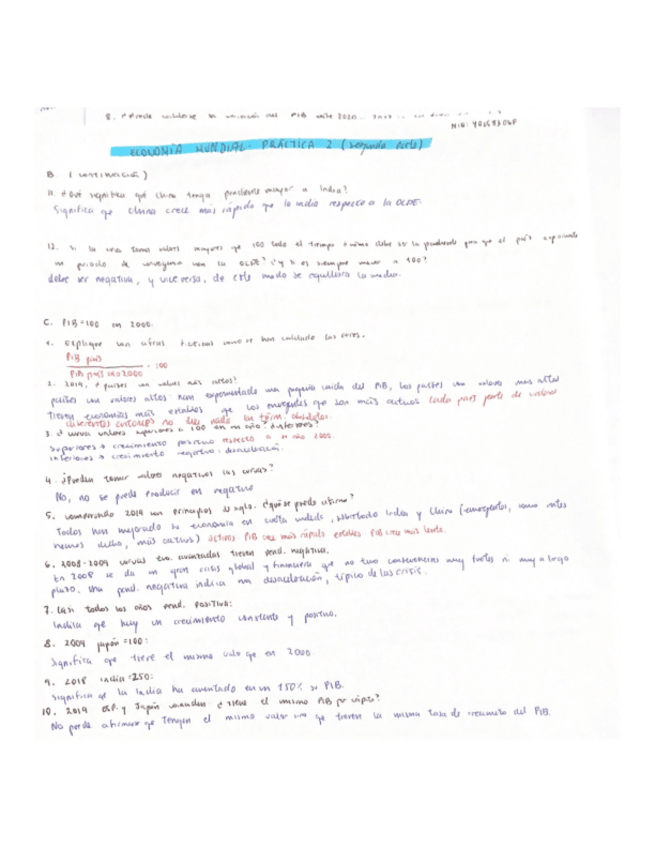 ECONOMÍA MUNDIAL: PRÁCTICA 2 (segunda parte)
B. (continuación)
11. ¿Qué significa que China tenga pendiente mayor a India?
Significa que China crece más rápido que la India respecto a la OCDE.
12. Si la curva toma valores mayores que 100 todo el tiempo ¿cómo debe ser la pendiente para que el país experimente
un periodo de convergencia con la OCDE? ¿y si es siempre menor a 100?
debe ser negativa, y viceversa, de este modo se equilibra la media.
C. PIB=100 en 2000.
1. Explique con cifras ficticias como se han calculado las curvas.
PIB país
PIB país año 2000 · 100
2. 2019, ¿países con valores más altos?
países con valores altos han experimentado una pequeña caída del PIB, los países con valores más altos
tienen economías más estables que los emergentes que son más activos cada país parte de valores
diferentes entonces no dice nada en térm. absolutos.
3. ¿curva valores superiores a 100 en un año? ¿inferiores?
Superiores → crecimiento positivo respecto a su año 2000.
inferiores → crecimiento negativo: desaceleración.
4. ¿Pueden tomar valores negativos las curvas?
No, no se puede producir en negativo
5. comparando 2019 con principios de siglo. ¿qué se puede afirmar?
Todos han mejorado su economía en cierta medida, sobretodo India y China (emergentes, como antes
hemos dicho, más activos) activos: PIB crec más rápido estables: PIB crec más lento.
6. 2008-2009 curvas eco. avanzadas tienen pend. negativa.
En 2008 se da una gran crisis global y financiera que no tuvo consecuencias muy fuertes ni muy a largo
plazo. Una pend. negativa indica una desaceleración, típico de las crisis.
7. Casi todos los años pend. positiva:
Indica que hay un crecimiento constante y positivo.
8. 2009 Japón =100:
Significa que tiene el mismo valor que en 2000.
9. 2018 India =250:
significa que la India ha aumentado en un 150% su PIB.
10. 2019 ESP. y Japón coinciden ¿tiene el mismo PIB per cápita?
No puede afirmarse que tengan el mismo valor sino que tienen la misma tasa de crecimiento del PIB.